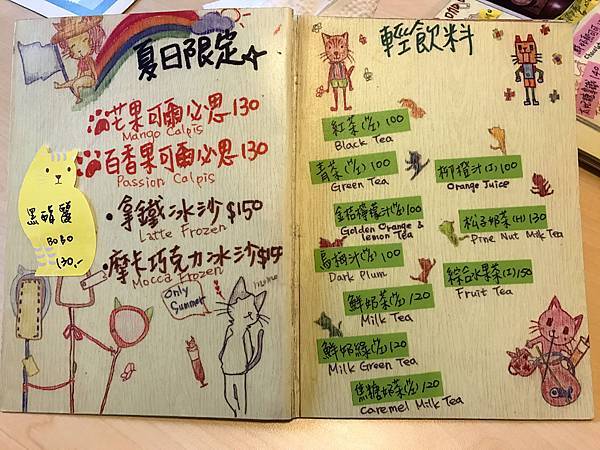 夏日限定
芒果可爾必思130
Mango Calpis
百香果可爾必思130
Passion Calpis
拿鐵冰沙$150
Latte Frozen
摩卡巧克力冰沙$15
Mocca Frozen
Only
Summer
BOBO
130.-
輕飲料
紅茶(I/H)100
Black Tea
青茶(I/H)100
Green Tea
金桔檸檬汁(I/H)100
Golden Orange &
lemon Tea
烏梅汁(I/H)100
Dark Plum
鮮奶茶(I/H)120
Milk Tea
鮮奶綠(I/H)120
Milk Green Tea
焦糖奶茶(I/H)120
Caremel Milk Tea
柳橙汁(I)100
Orange Juice
松子奶茶(H)130
Pine Nut Milk Tea
綜合水果茶(I)150
Fruit Tea